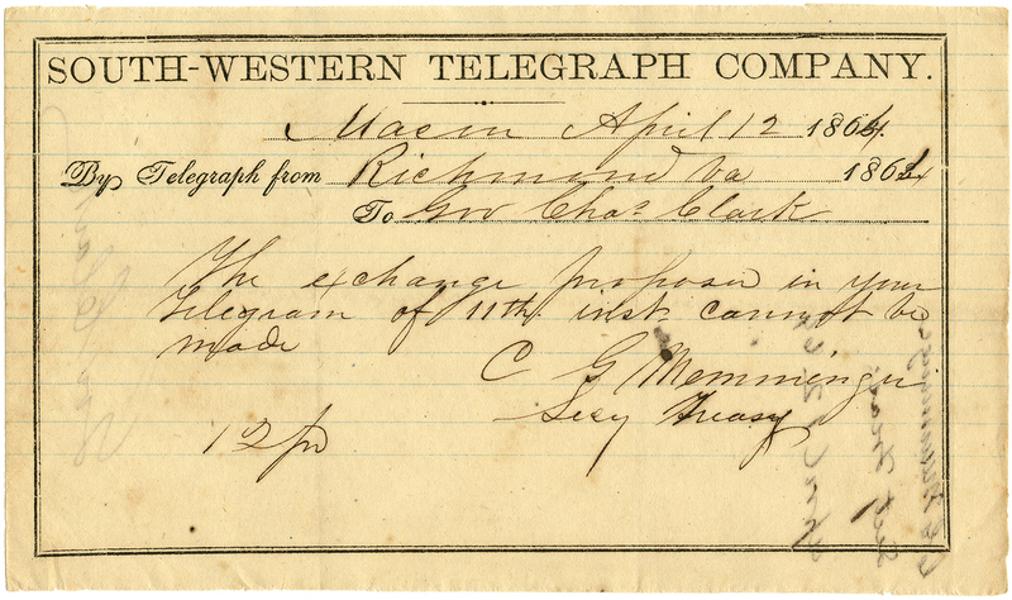 SOUTH-WESTERN TELEGRAPH COMPANY.
Macon April 12 1864.
By Telegraph from Richmond Va 1864
To Gov Chas. Clark
The exchange proposed in your
telegram of 11th inst cannot be
made
C G Memminger
Secy Treasy